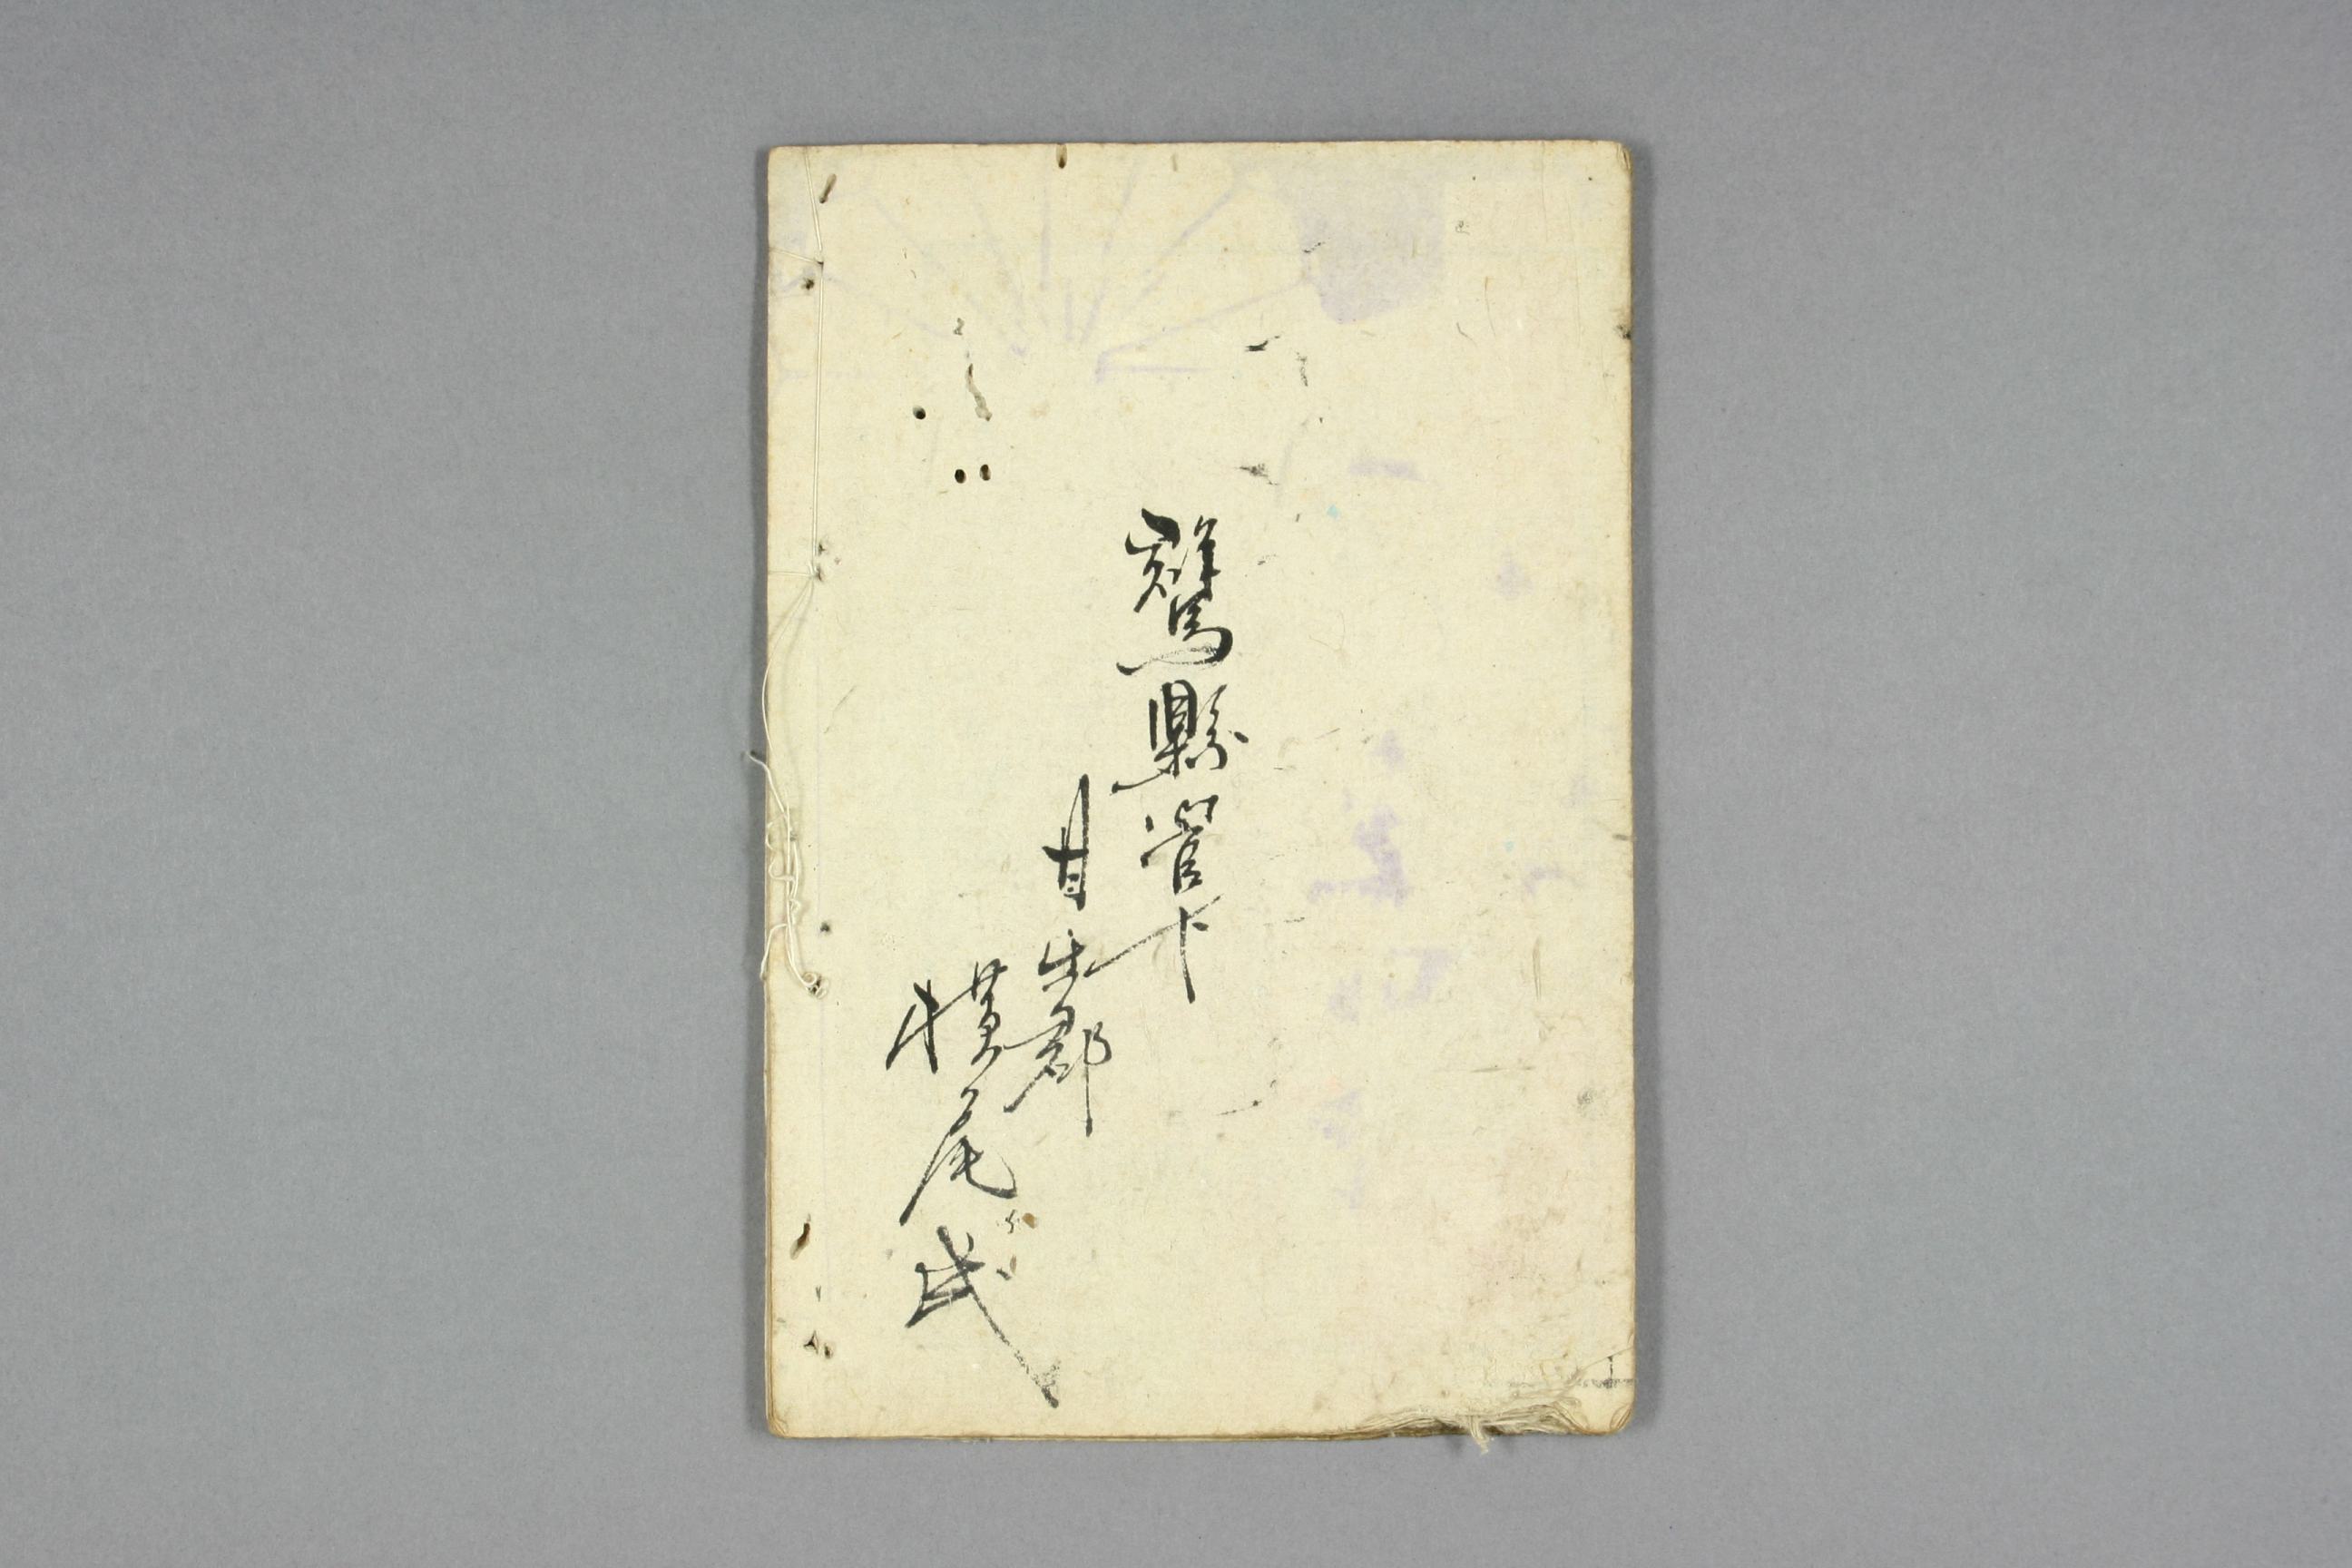 群馬縣管下
甘楽郡
横尾氏